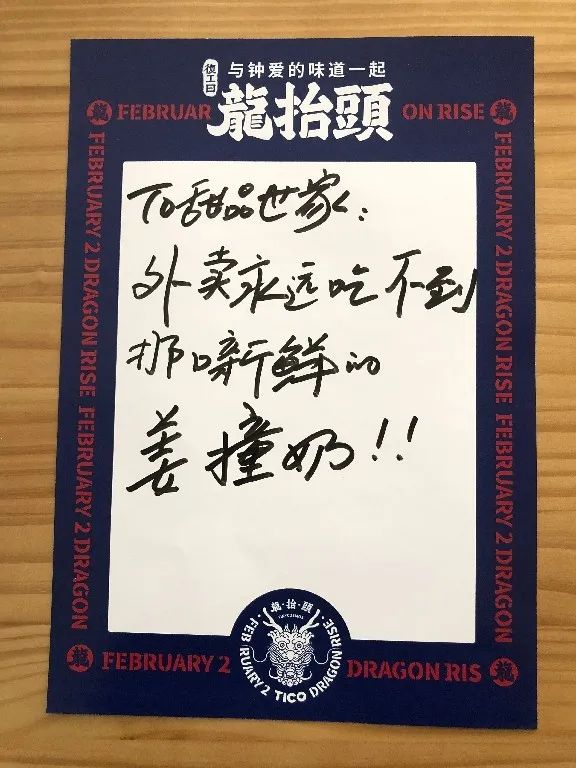 復工日
与钟爱的味道一起
龍抬頭
龍 FEBRUAR
ON RISE 龍
FEBRUARY 2 DRAGON RISE FEBRUARY 2 DRAGON
FEBRUARY 2 DRAGON RISE FEBRUARY 2 DRAGON RIS
To甜品世家:
外卖永远吃不到
那口新鲜的
姜撞奶!!
龍·抬·頭
FEBRUARY 2 TICO DRAGON RISE
龍 FEBRUARY 2
DRAGON RIS 龍